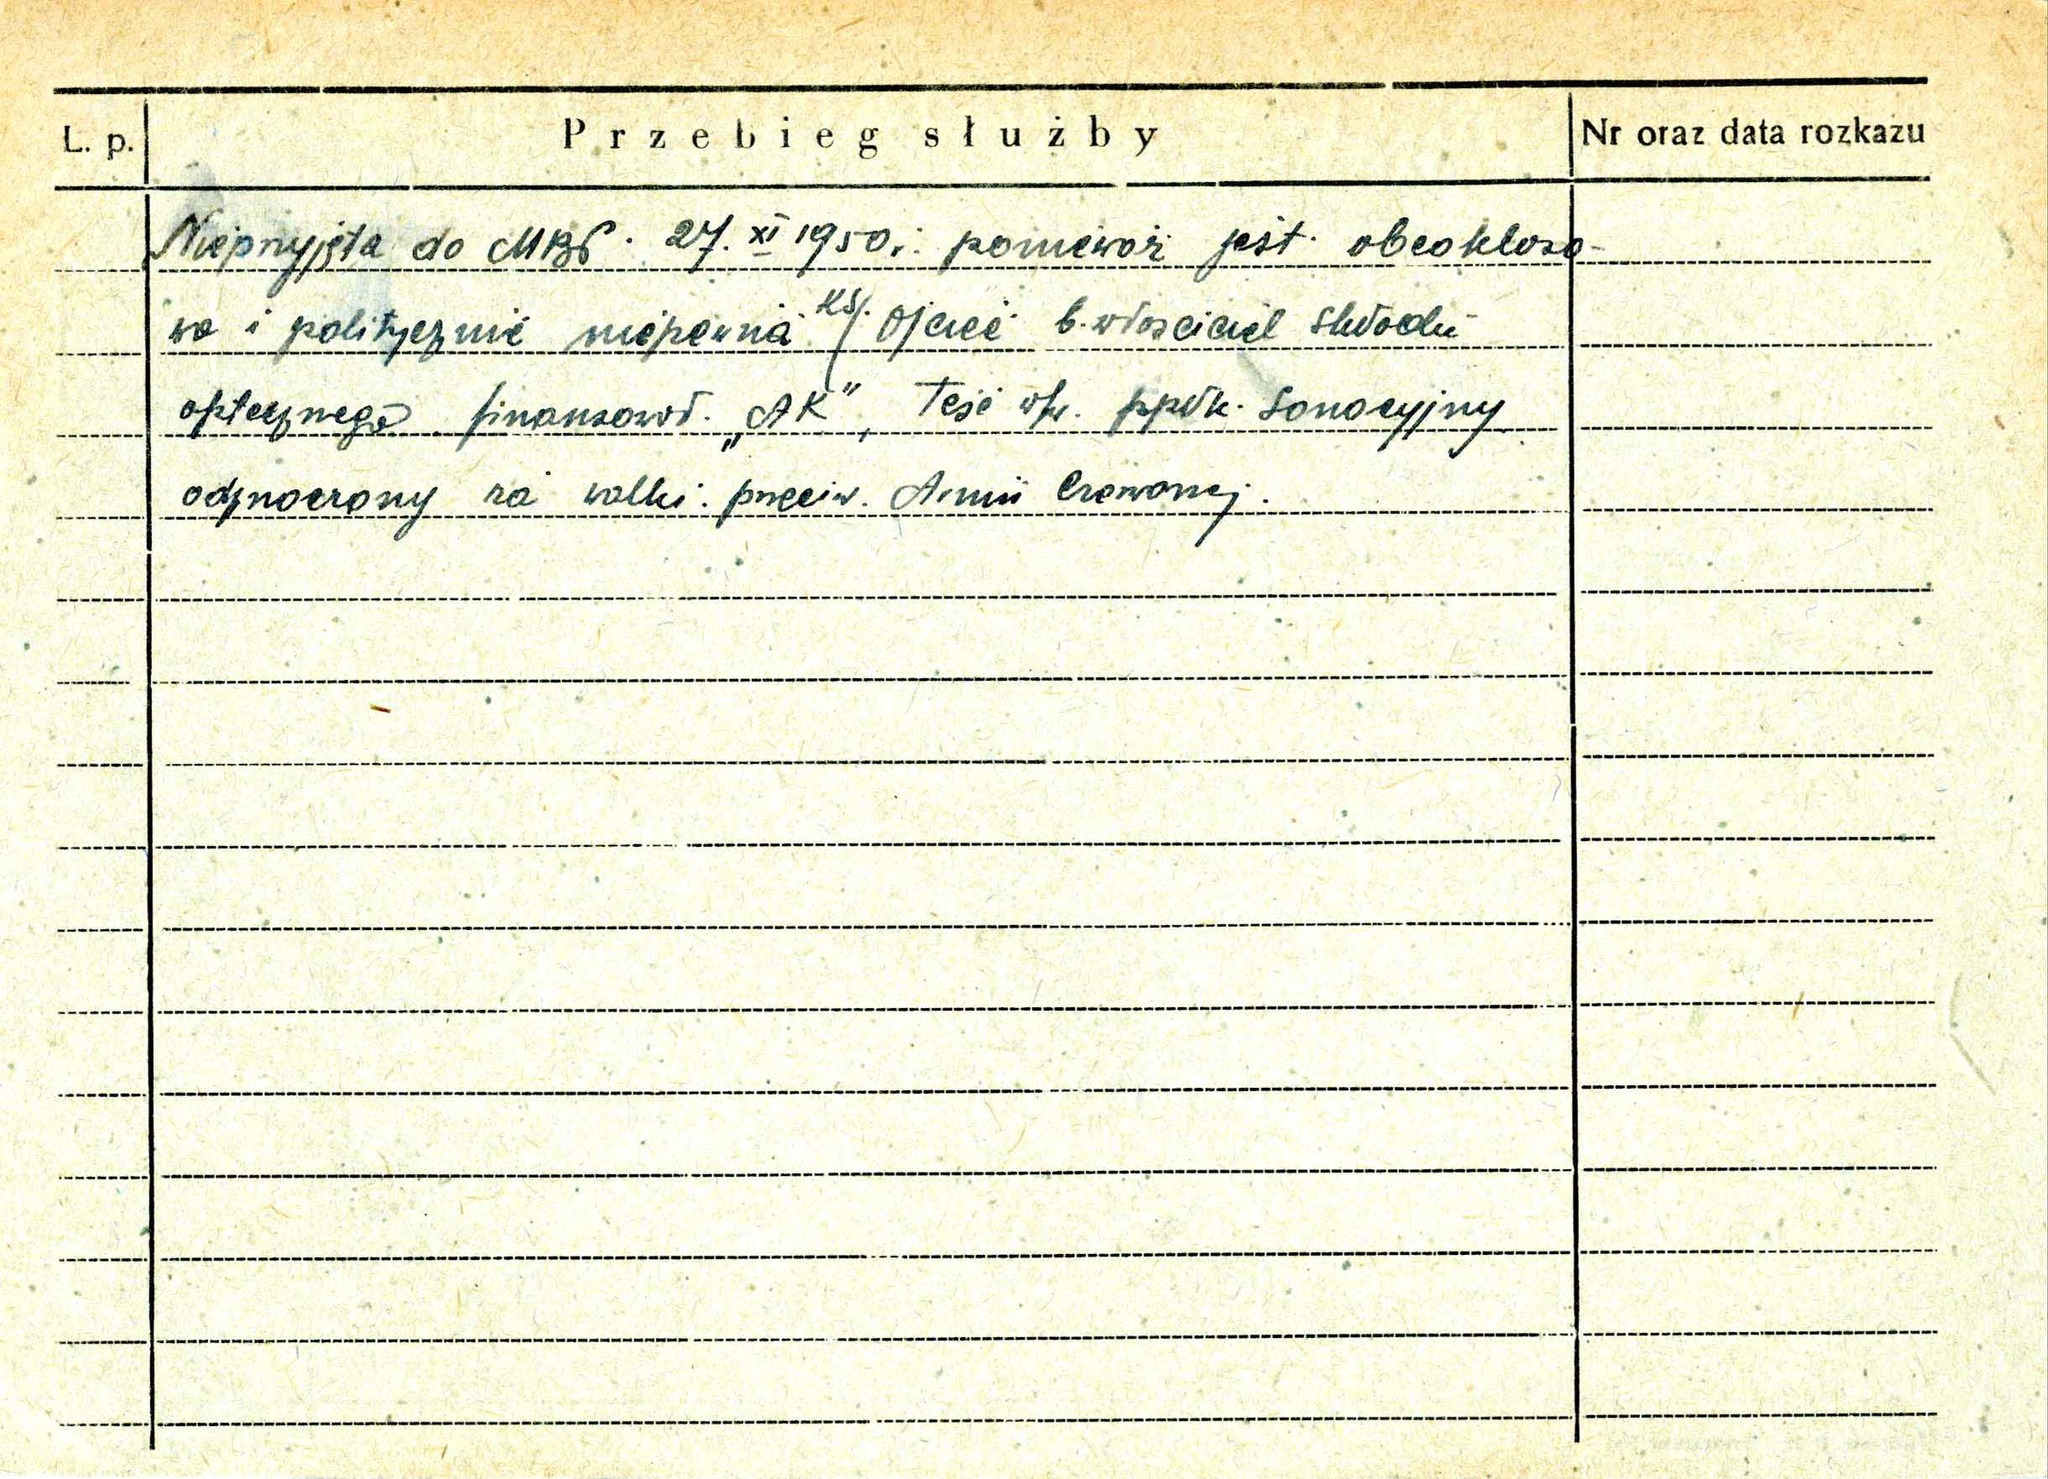 L. p. Przebieg służby Nr oraz data rozkazu
Nieprzyjęta do MBP. 27. XI 1950 r. ponieważ jest obcoklaso-
wa i politycznie niepewna Ojciec b. właściciel składu
aptecznego finansował „AK”, Teść ppłk. sanacyjny
odznaczony za walki przeciw. Armii Czerwonej.